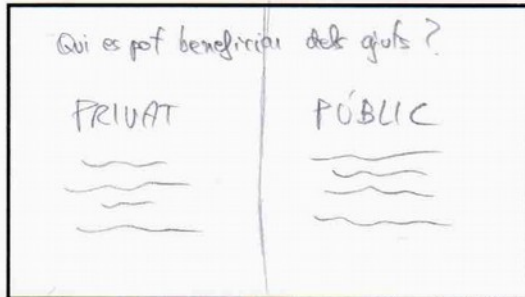 Qui es pot beneficiar dels ajuts?
PRIVAT
PÚBLIC